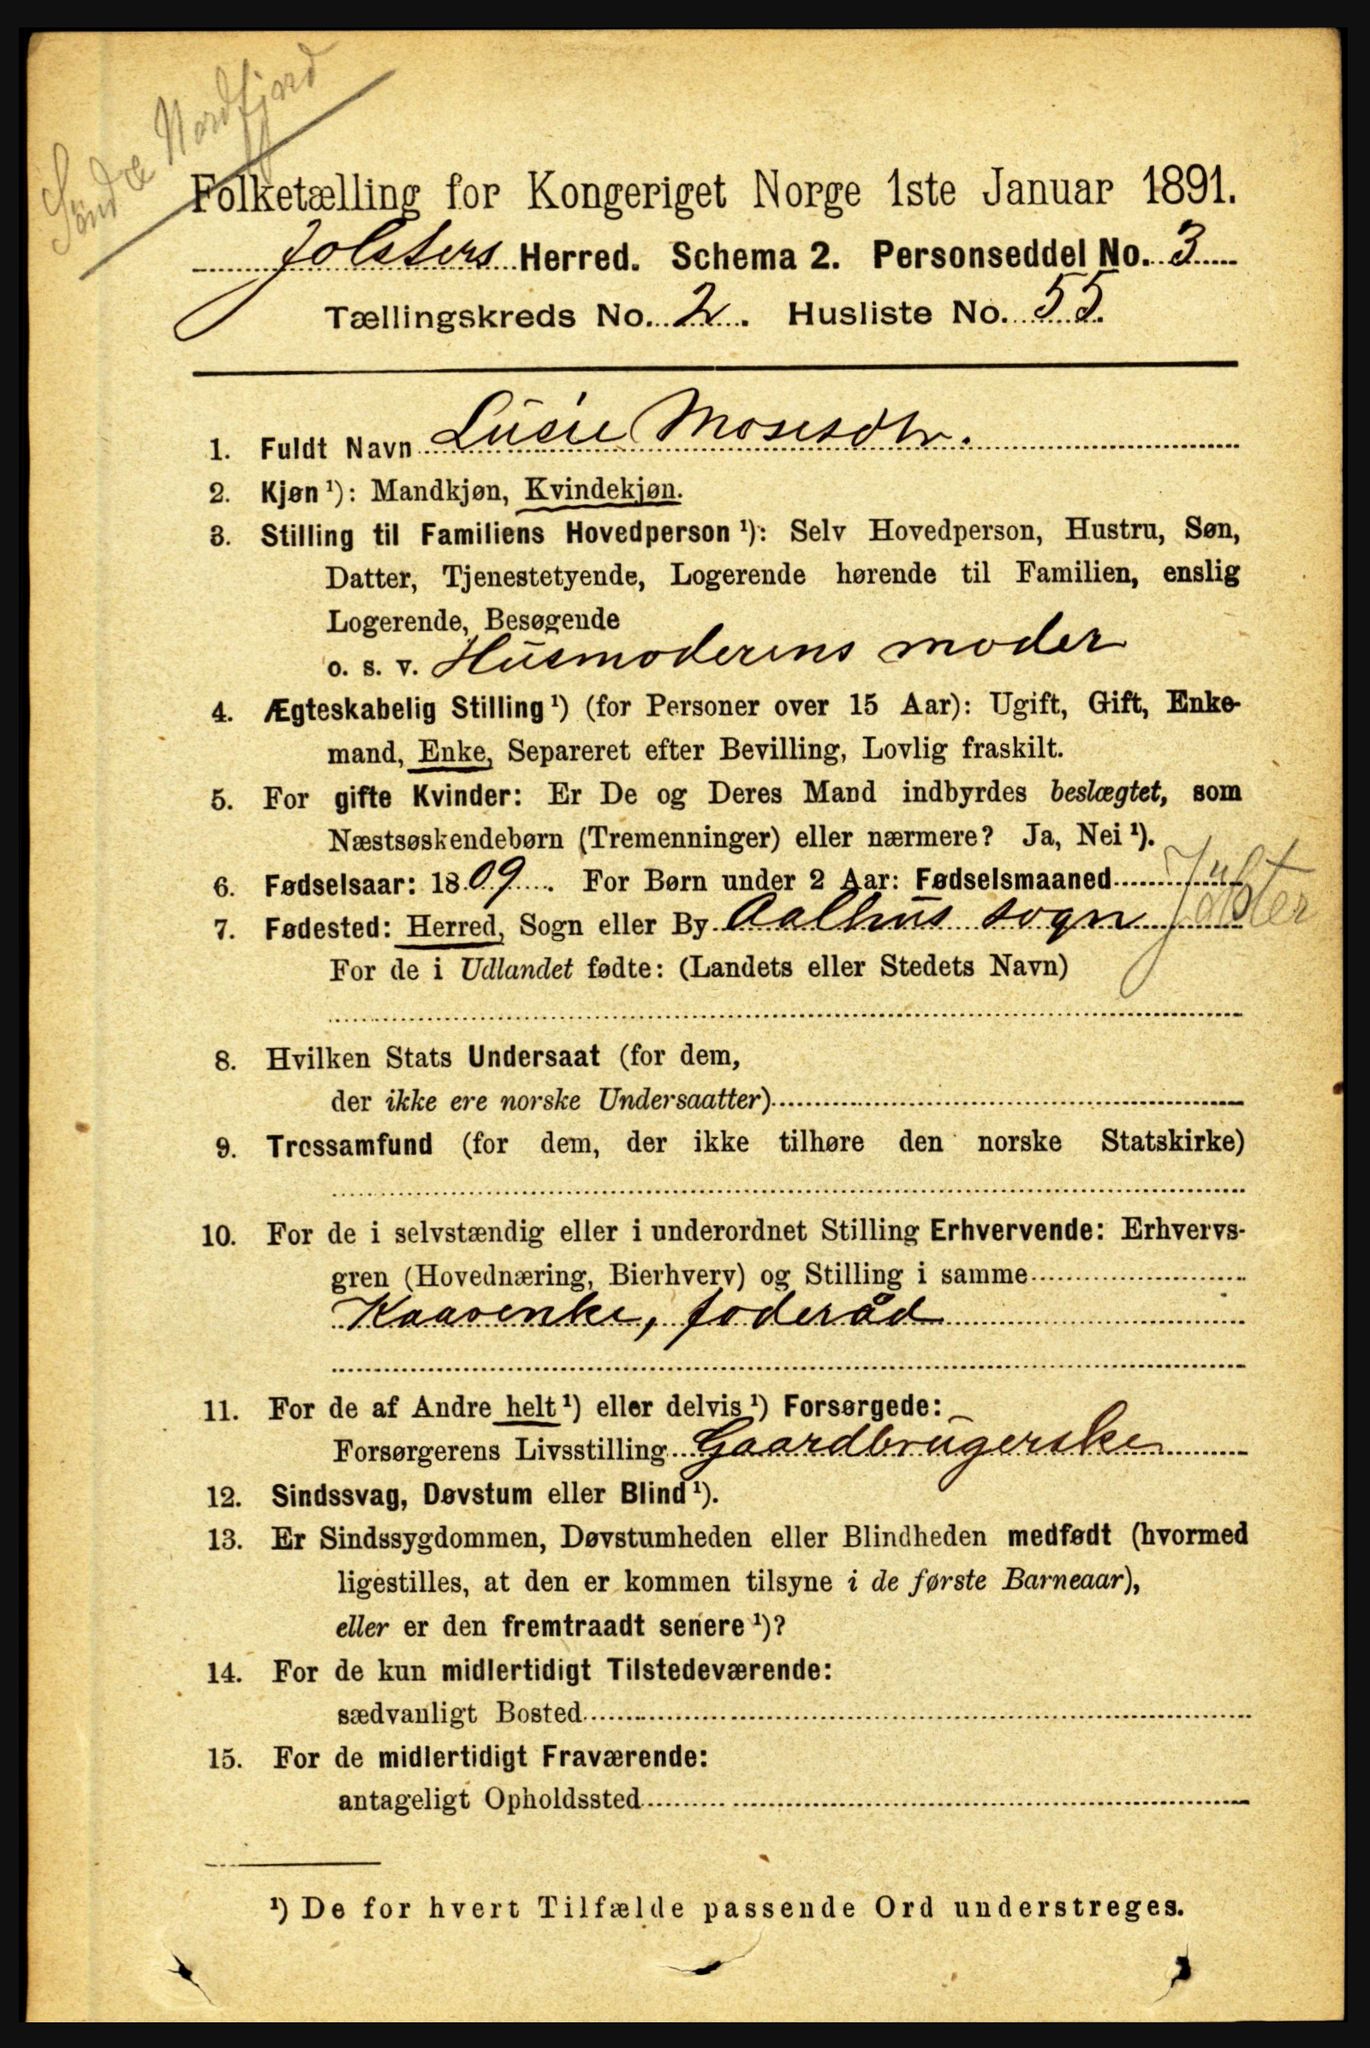 Søndre Nordfjord
Folketælling for Kongeriget Norge 1ste Januar 1891.
Jolsters Herred. Schema 2. Personseddel No. 3
Tællingskreds No. 2. Husliste No. 55.
1. Fuldt Navn Lucie Mosesdtr.
2. Kjøn ¹): Mandkjøn, Kvindekjøn.
3. Stilling til Familiens Hovedperson ¹): Selv Hovedperson, Hustru, Søn,
Datter, Tjenestetyende, Logerende hørende til Familien, enslig
Logerende, Besøgende
o. s. v. Husmoderens moder
4. Ægteskabelig Stilling ¹) (for Personer over 15 Aar): Ugift, Gift, Enke-
mand, Enke, Separeret efter Bevilling, Lovlig fraskilt.
5. For gifte Kvinder: Er De og Deres Mand indbyrdes beslægtet, som
Næstsøskendebørn (Tremenninger) eller nærmere? Ja, Nei ¹).
6. Fødselsaar: 1809. For Børn under 2 Aar: Fødselsmaaned
7. Fødested: Herred, Sogn eller By Aalhus sogn Jølster
For de i Udlandet fødte: (Landets eller Stedets Navn)
8. Hvilken Stats Undersaat (for dem,
der ikke ere norske Undersaatter)
9. Trossamfund (for dem, der ikke tilhøre den norske Statskirke)
10. For de i selvstændig eller i underordnet Stilling Erhvervende: Erhvervs-
gren (Hovednæring, Bierhverv) og Stilling i samme
Kaarenke, foderåd
11. For de af Andre helt ¹) eller delvis ¹) Forsørgede:
Forsørgerens Livsstilling Gaardbrugerske
12. Sindssvag, Døvstum eller Blind ¹).
13. Er Sindssygdommen, Døvstumheden eller Blindheden medfødt (hvormed
ligestilles, at den er kommen tilsyne i de første Barneaar),
eller er den fremtraadt senere ¹)?
14. For de kun midlertidigt Tilstedeværende:
sædvanligt Bosted
15. For de midlertidigt Fraværende:
antageligt Opholdssted
¹) De for hvert Tilfælde passende Ord understreges.